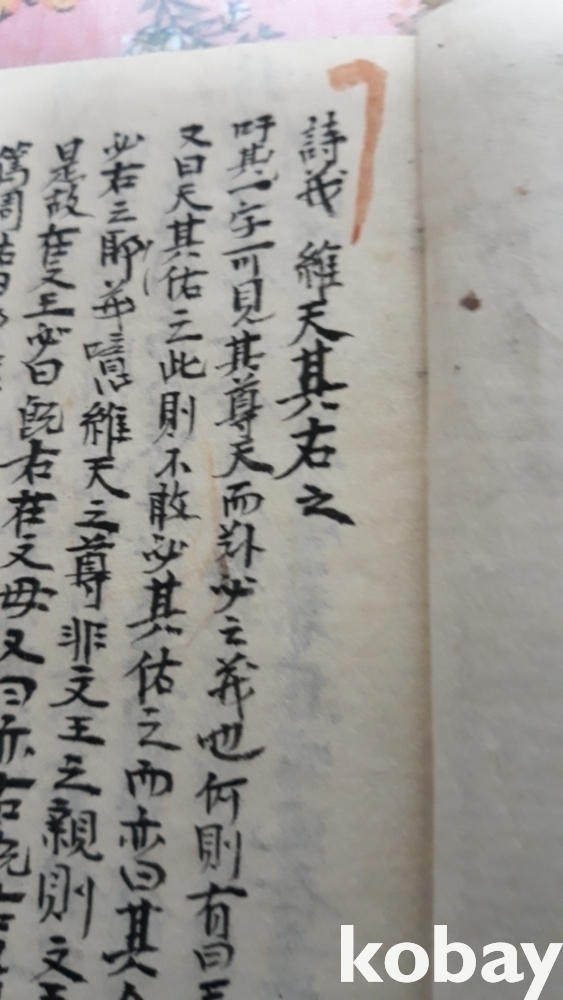 詩義 維天其右之
吁其一字可見其尊天而卦必之義也何則有曰
又曰天其佑之此則不敢必其佑之而亦曰其
必右之耶并噫維天之尊非文王之親則文王
是故在文王必曰旣右在文母又曰亦右
篤周祜
kobay